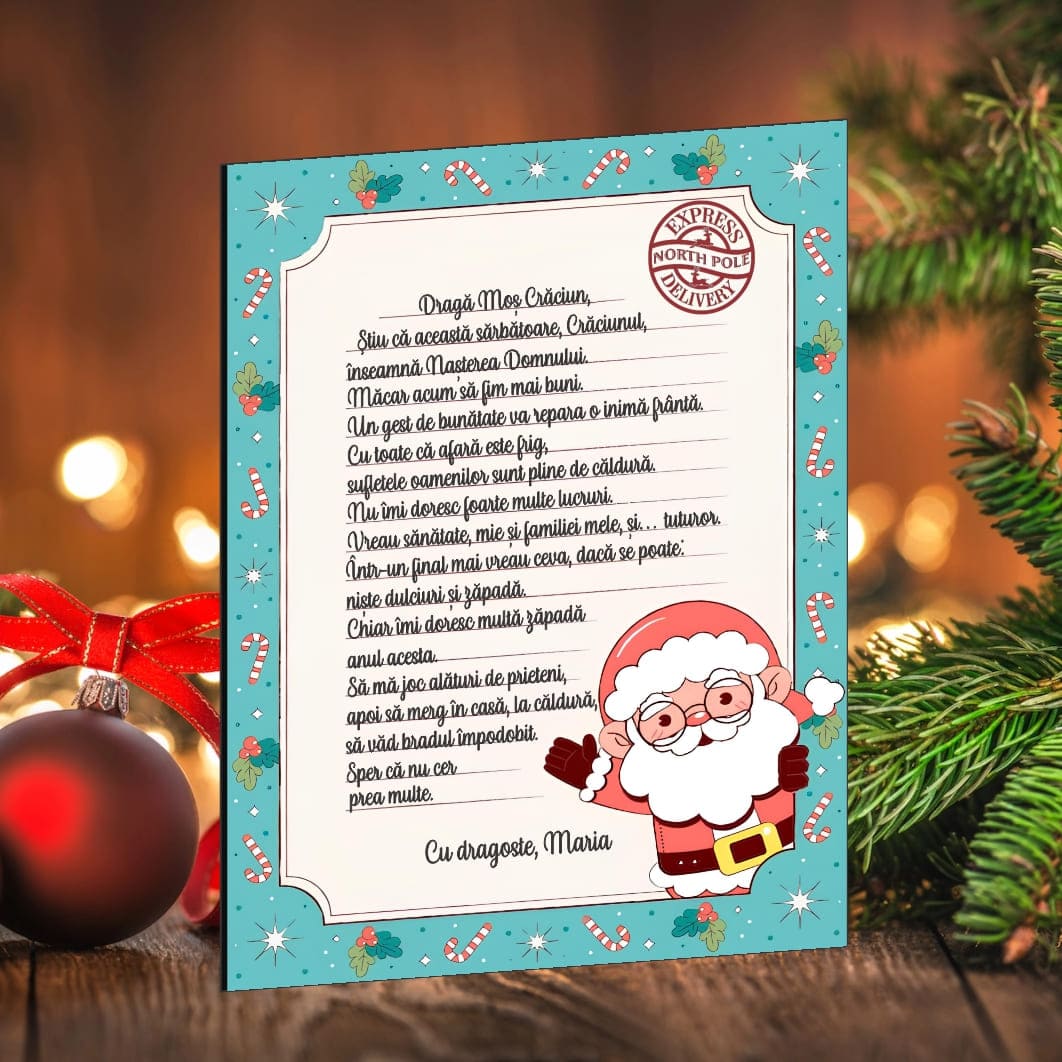 EXPRESS
NORTH POLE
DELIVERY
Dragă Moș Crăciun,
Știu că această sărbătoare, Crăciunul,
înseamnă Nașterea Domnului.
Măcar acum să fim mai buni.
Un gest de bunătate va repara o inimă frântă.
Cu toate că afară este frig,
sufletele oamenilor sunt pline de căldură.
Nu îmi doresc foarte multe lucruri.
Vreau sănătate, mie și familiei mele, și... tuturor.
Într-un final mai vreau ceva, dacă se poate:
niște dulciuri și zăpadă.
Chiar îmi doresc multă zăpadă
anul acesta.
Să mă joc alături de prieteni,
apoi să merg în casă, la căldură,
să văd bradul împodobit.
Sper că nu cer
prea multe.
Cu dragoste, Maria